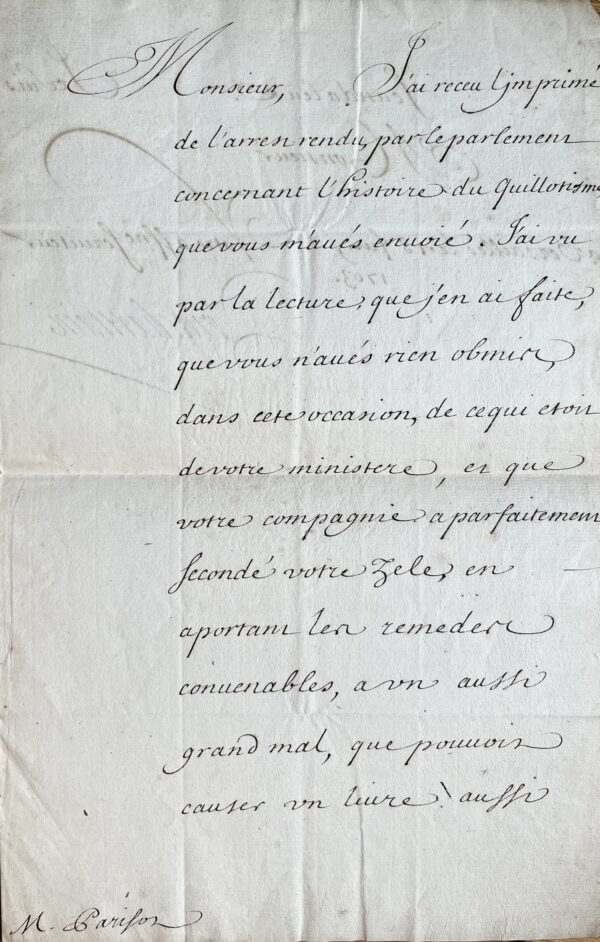 Monsieur, J'ai receu l'imprimé
de l'arrest rendu par le parlement
concernant l'histoire du Quillotisme,
que vous m'aués enuoié. J'ai vu
par la lecture, que j'en ai faite,
que vous n'aués rien obmis,
dans cete occasion, de ce qui etoit
de votre ministere, et que
votre compagnie a parfaitement
secondé votre zele, en
aportant les remedes
conuenables, a vn aussi
grand mal, que pouvoit
causer vn liure aussi
M. Parisot
1703.